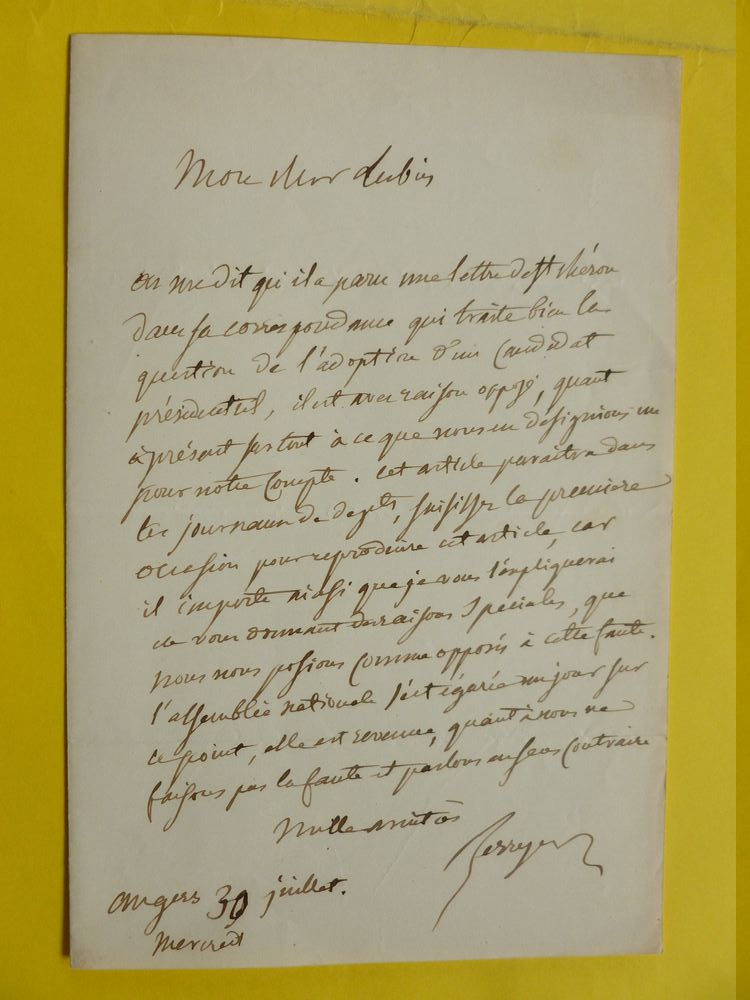 Mon cher dubois
on me dit qu'il a paru une lettre de St chéron
dans sa correspondance qui traite bien la
question de l'adoption d'un candidat
présidentiel, il est avec raison opposé, quant
à présent surtout à ce que nous en désignions un
pour notre compte. cet article paraîtra dans
les journaux de dépts, saisissez la première
occasion pour reproduire cet article, car
il importe ainsi que je vous l'expliquerai
en vous donnant des raisons spéciales, que
nous nous posions comme opposés à cette faute.
l'assemblée nationale s'est égarée un jour sur
ce point, elle est revenue, quant à nous ne
faisons pas la faute et parlons en sens contraire
Mille amitiés
Berryer
angers 30 juillet.
Mercredi